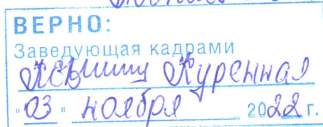 ВЕРНО:
Заведующая кадрами
Куренная
"03" ноября 2022 г.